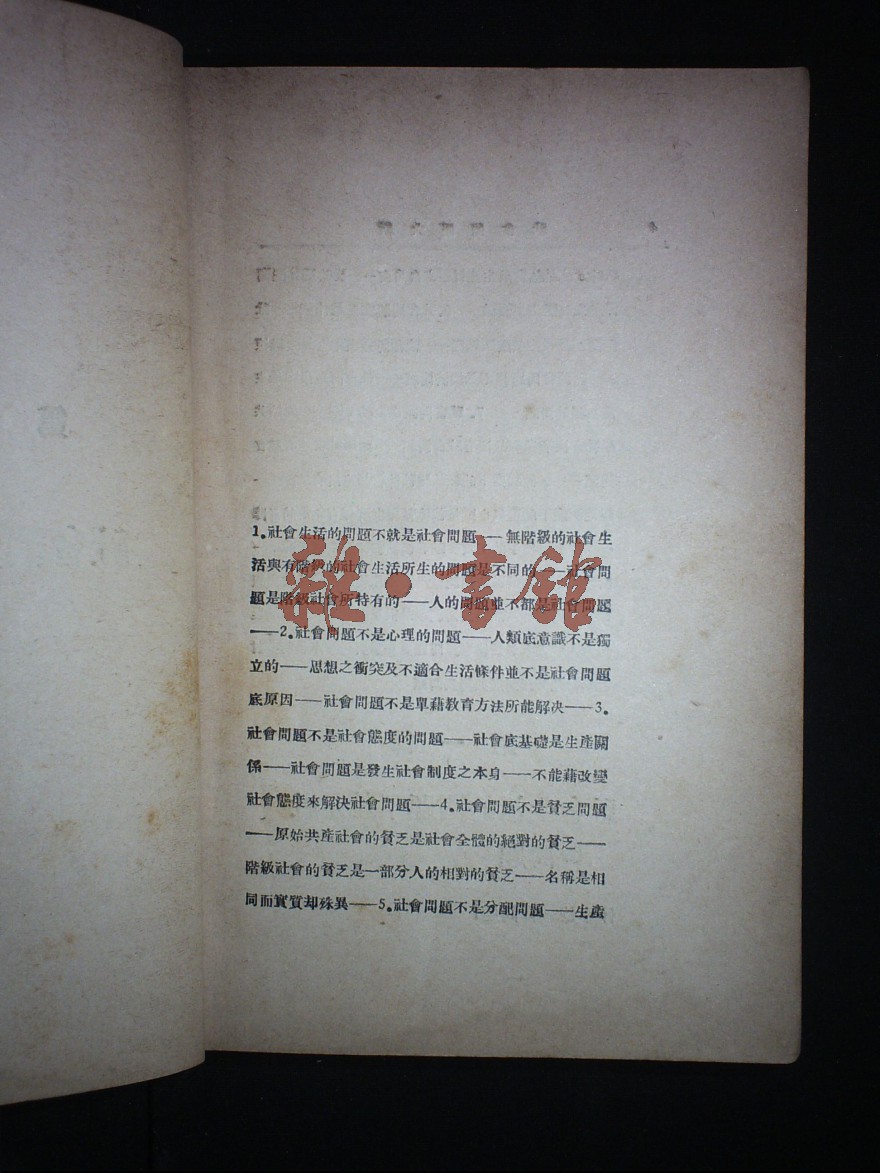 1.社會生活的問題不就是社會問題——無階級的社會生
活與有階級的社會生活所生的問題是不同的——社會問
題是階級社會所特有的——人的問題並不都是社會問題
——2.社會問題不是心理的問題——人類底意識不是獨
立的——思想之衝突及不適合生活條件並不是社會問題
底原因——社會問題不是單藉教育方法所能解决——3.
社會問題不是社會態度的問題——社會底基礎是生產關
係——社會問題是發生社會制度之本身——不能藉改變
社會態度來解決社會問題——4.社會問題不是貧乏問題
——原始共產社會的貧乏是社會全體的絕對的貧乏——
階級社會的貧乏是一部分人的相對的貧乏——名稱是相
同而實質却殊異——5.社會問題不是分配問題——生產
雜·書館